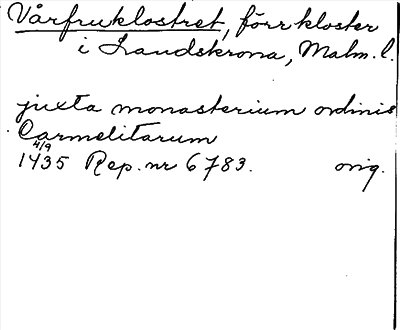 Vårfruklostret, förr kloster
i Landskrona, Malm. l.
juxta monasterium ordinis
Carmelitarum
4/9
1435 Rep. nr 6783. orig.